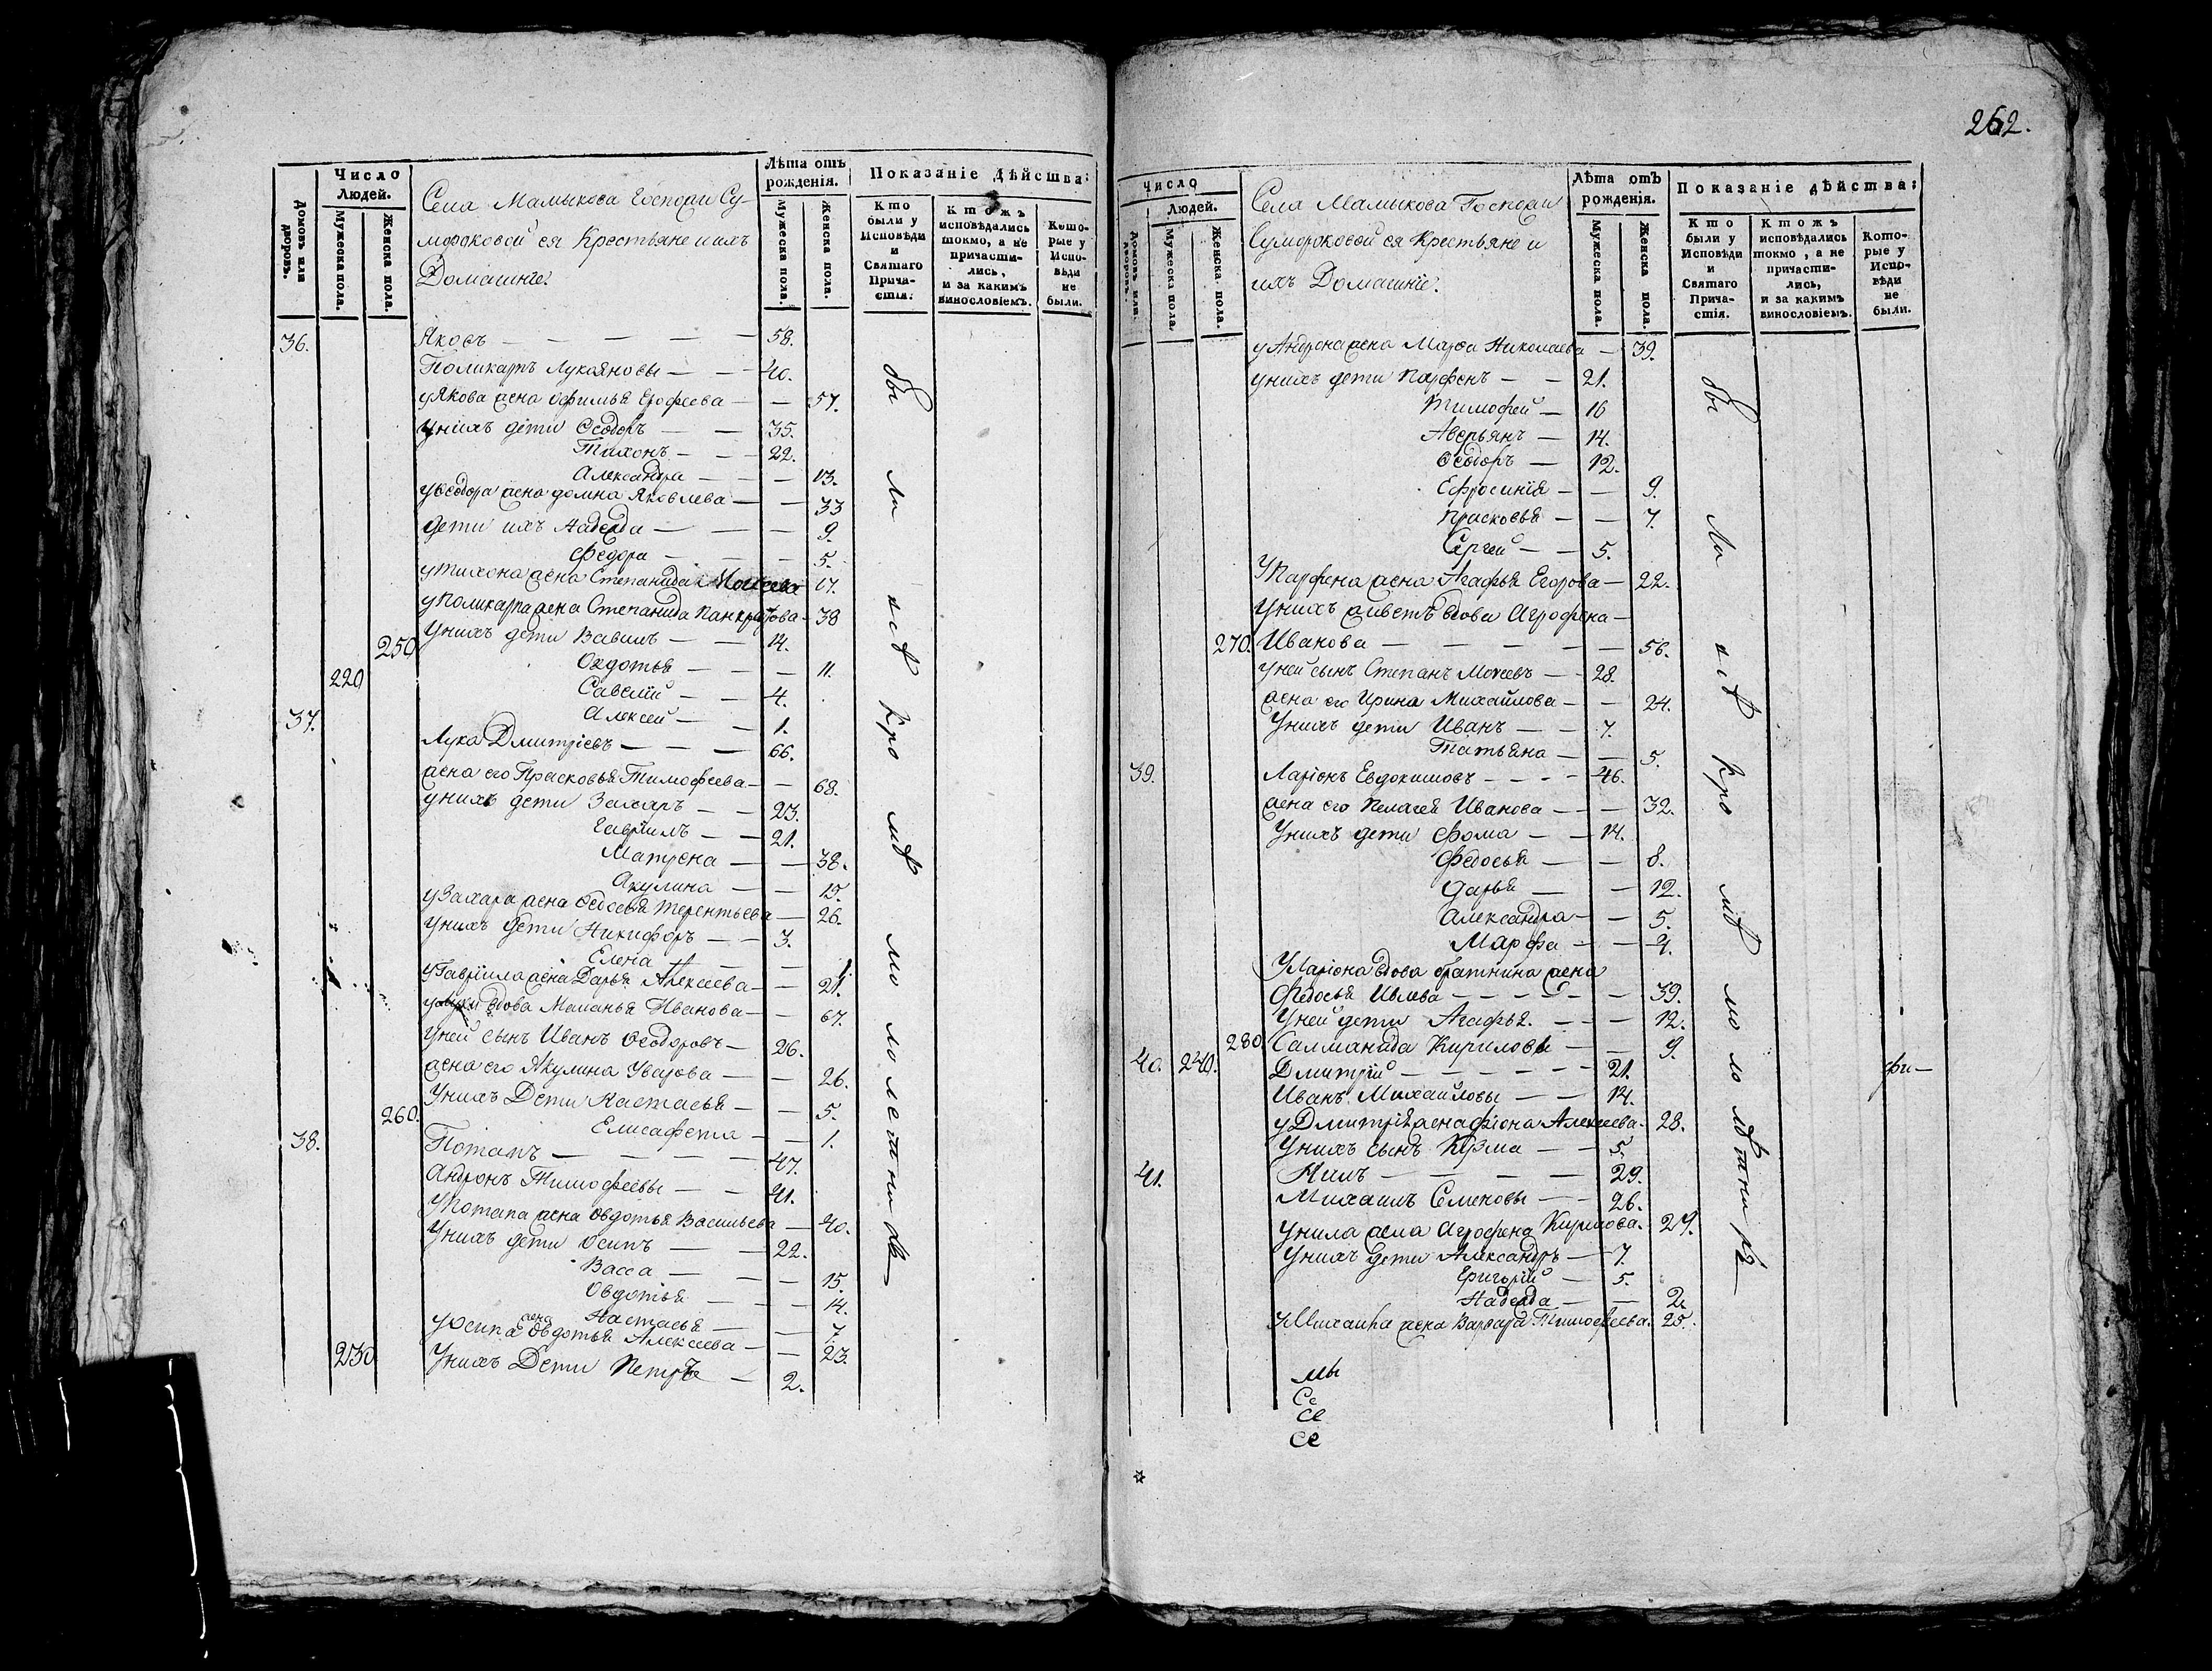 Число
Людей.
Домовъ или дворовъ.
Мужеска пола.
Женска пола.
Села Мамыкова Госпожи Су-
мороковой ея Крестьяне и ихъ
Домашние.
Лѣта отъ
рожденія.
Мужеска пола.
Женска пола.
Показаніе дѣйства:
Кто
были у
Исповѣди
и
Святаго
Прича-
стія.
Ктожъ
исповѣдались
токмо, а не
причасти-
лись,
и за какимъ
винословіемъ.
Кото-
рые у
Испо-
вѣди
не
были.
36. Яковъ — 58.
Поликарпъ Лукояновы — 40.
у Якова жена Офимья Ерофеева — 57.
у нихъ дети Ѳеодоръ — 35.
Тихонъ — 22.
Александра — 13.
у Ѳеодора жена Домна Яковлева — 33
дети ихъ Надежда — 9.
Федора — 5.
у Тихона жена Степанида 17.
у Поликарпа жена Степанида Панкратова — 38
250 У нихъ дети Вавилъ — 14.
Овдотья — 11.
220 Савелій — 4.
Алексей — 1.
37. Лука Дмитріевъ — 66.
жена его Прасковья Тимофеева — 68.
у нихъ дети Захаръ — 23.
Гаврилъ — 21.
Матрена — 38.
Акулина — 15.
у Захара жена Ѳедосья Терентьева — 26.
у нихъ дети Никифоръ — 3.
Елена — 1.
у Гаврила жена Дарья Алексеева — 21.
у Луки вдова Маланья Иванова — 67.
у ней сынъ Иванъ Ѳеодоровъ — 26.
жена его Акулина Уварова — 26.
У нихъ Дети Настасья — 5.
260. Елисафета — 1.
38. Потапъ — 47.
Андронъ Тимофеевы — 41.
У Потапа жена Овдотья Васильева — 40.
У нихъ дети Осипъ — 22.
Васса — 15.
Овдотья — 14.
Настасья — 7.
у Осипа жена Овдотья Алексеева — 23.
230 У нихъ Дети Петръ — 2.
бы
ли
262.
Число
Людей.
Домовъ или дворовъ.
Мужеска пола.
Женска пола.
Села Мамыкова Госпожи
Сумороковой ея Крестьяне и
ихъ Домашніе.
Лѣта отъ
рожденія.
Мужеска пола.
Женска пола.
Показаніе дѣйства:
Кто
были у
Исповѣди
и
Святаго
Прича-
стія.
Ктожъ
исповѣдались
токмо, а не
причасти-
лись,
и за какимъ
винословіемъ.
Кото-
рые у
Испо-
вѣди
не
были.
у Андрона жена Марфа Николаева — 39.
у нихъ дети Парфенъ — 21.
Тимофей — 16
Аверьянъ — 14.
Ѳеодоръ — 12.
Ефросинія — 9.
Прасковья — 7.
Сергей — 5.
У Парфена жена Агафья Егорова — 22.
У нихъ живетъ вдова Агрофена —
270. Иванова — 56.
у ней сынъ Степанъ Мосеевъ — 28.
жена его Ирина Михайлова — 24.
У нихъ дети Иванъ — 7.
Татьяна — 5.
39. Ларіонъ Евдокимовъ — 46.
жена его Пелагея Иванова — 32.
У нихъ дети Фома — 14.
Федосья — 8.
Дарья — 12.
Александра — 5.
Марфа —
У Ларіона вдова братнина жена
Федосья Ивлева — 39.
У ней дети Агафья. — 12.
280 Саломанида Кириловы — 9.
40. 240. Дмитрій — 21.
Иванъ Михайловы — 14.
у Дмитрія жена Фіона Алексеева — 28.
У нихъ сынъ Кузма — 5.
41. Нилъ — 29.
Михаилъ Семеновы — 26.
У Нила жена Агрофена Кирилова. 27.
У нихъ дети Александръ — 7.
Григорій — 5.
Надежда — 2.
У Михаила жена Варвара Тимофеева. 25.
мы
Се
се
се
бы
ли